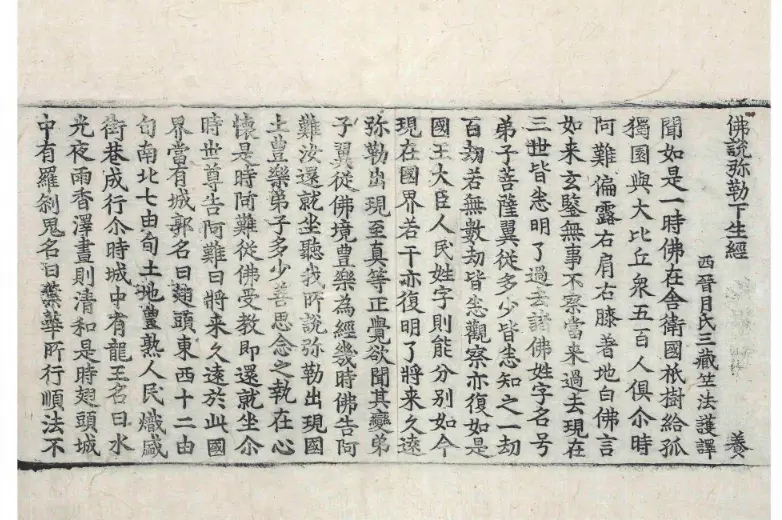 佛說弥勒下生經 養
西晉月氏三藏竺法護譯
聞如是一時佛在舍衛國祇樹給孤
獨園與大比丘衆五百人俱尒時
阿難偏露右肩右膝著地白佛言
如来玄鑒無事不察當来過去現在
三世皆悉明了過去諸佛姓字名号
弟子菩薩翼從多少皆悉知之一劫
百劫若無數劫皆悉觀察亦復如是
國王大臣人民姓字則能分別如今
現在國界若干亦復明了將来久遠
弥勒出現至真等正覺欲聞其變弟
子翼從佛境豊樂為經幾時佛告阿
難汝還就坐聽我所說弥勒出現國
土豊樂弟子多少善思念之執在心
懷是時阿難從佛受教即還就坐尒
時世尊告阿難曰將来久遠於此國
界當有城郭名曰翅頭東西十二由
旬南北七由旬土地豊熟人民熾盛
街巷成行尒時城中有龍王名曰水
光夜雨香澤晝則清和是時翅頭城
中有羅刹鬼名曰葉華所行順法不